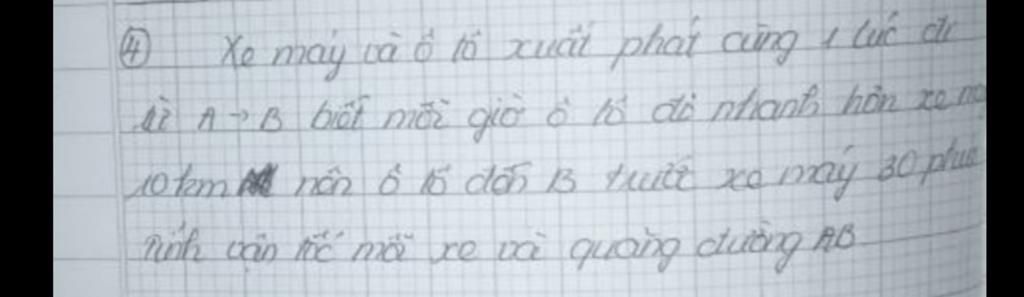 ④ Xe máy và ô tô xuất phát cùng 1 lúc đi
từ A → B biết mỗi giờ ô tô đi nhanh hơn xe
10km nên ô tô đến B trước xe máy 30 phút
tính vận tốc mỗi xe và quãng đường AB